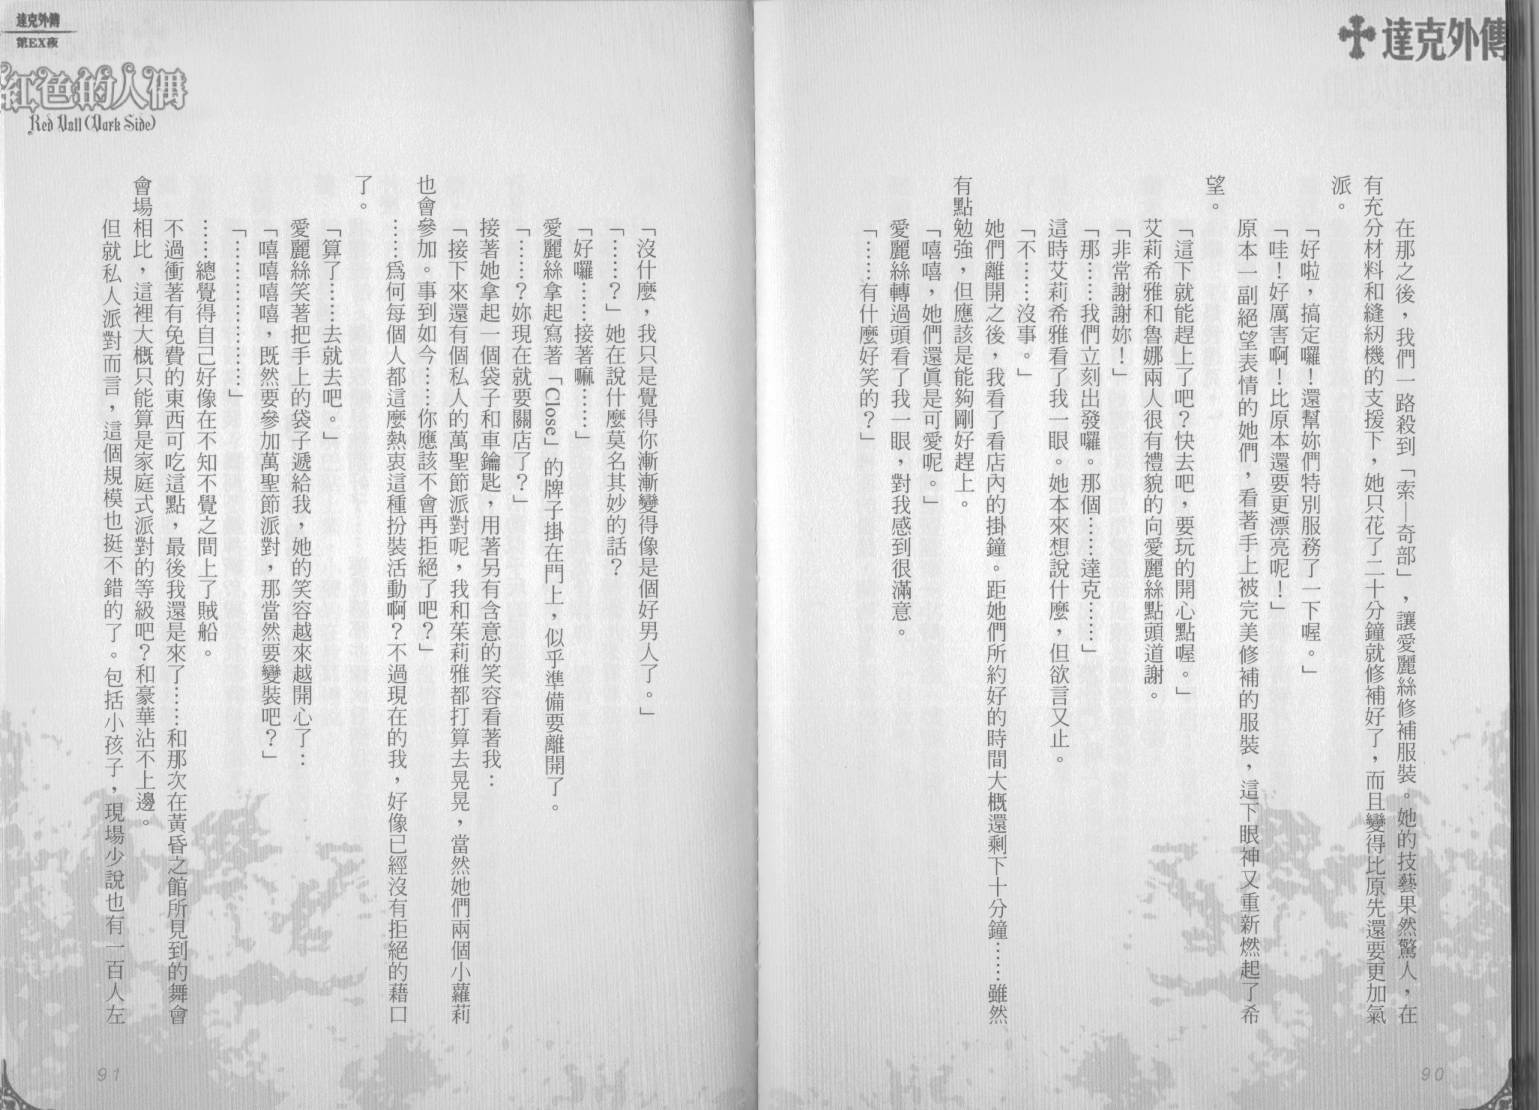 達克外傳
在那之後，我們一路殺到「索—奇部」，讓愛麗絲修補服裝。她的技藝果然驚人，在
有充分材料和縫紉機的支援下，她只花了二十分鐘就修補好了，而且變得比原先還要更加氣
派。
「好啦，搞定囉！還幫妳們特別服務了一下喔。」
「哇！好厲害啊！比原本還要更漂亮呢！」
原本一副絕望表情的她們，看著手上被完美修補的服裝，這下眼神又重新燃起了希
望。
「這下就能趕上了吧？快去吧，要玩的開心點喔。」
艾莉希雅和魯娜兩人很有禮貌的向愛麗絲點頭道謝。
「非常謝謝妳！」
「那……我們立刻出發囉。那個……達克……」
這時艾莉希雅看了我一眼。她本來想說什麼，但欲言又止。
「不……沒事。」
她們離開之後，我看了看店內的掛鐘。距她們所約好的時間大概還剩下十分鐘……雖然
有點勉強，但應該是能夠剛好趕上。
「嘻嘻，她們還真是可愛呢。」
愛麗絲轉過頭看了我一眼，對我感到很滿意。
「……有什麼好笑的？」
90
達克外傳
第EX夜
紅色的人偶
Red Doll (Dark Side)
「沒什麼，我只是覺得你漸漸變得像是個好男人了。」
「……？」她在說什麼莫名其妙的話？
「好囉……接著嘛……」
愛麗絲拿起寫著「Close」的牌子掛在門上，似乎準備要離開了。
「……？妳現在就要關店了？」
接著她拿起一個袋子和車鑰匙，用著另有含意的笑容看著我：
「接下來還有個私人的萬聖節派對呢，我和茱莉雅都打算去晃晃，當然她們兩個小蘿莉
也會參加。事到如今……你應該不會再拒絕了吧？」
……為何每個人都這麼熱衷這種扮裝活動啊？不過現在的我，好像已經沒有拒絕的藉口
了。
「算了……去就去吧。」
愛麗絲笑著把手上的袋子遞給我，她的笑容越來越開心了：
「嘻嘻嘻嘻，既然要參加萬聖節派對，那當然要變裝吧？」
「………………」
……總覺得自己好像在不知不覺之間上了賊船。
不過衝著有免費的東西可吃這點，最後我還是來了……和那次在黃昏之館所見到的舞會
會場相比，這裡大概只能算是家庭式派對的等級吧？和豪華沾不上邊。
但就私人派對而言，這個規模也挺不錯的了。包括小孩子，現場少說也有一百人左
91